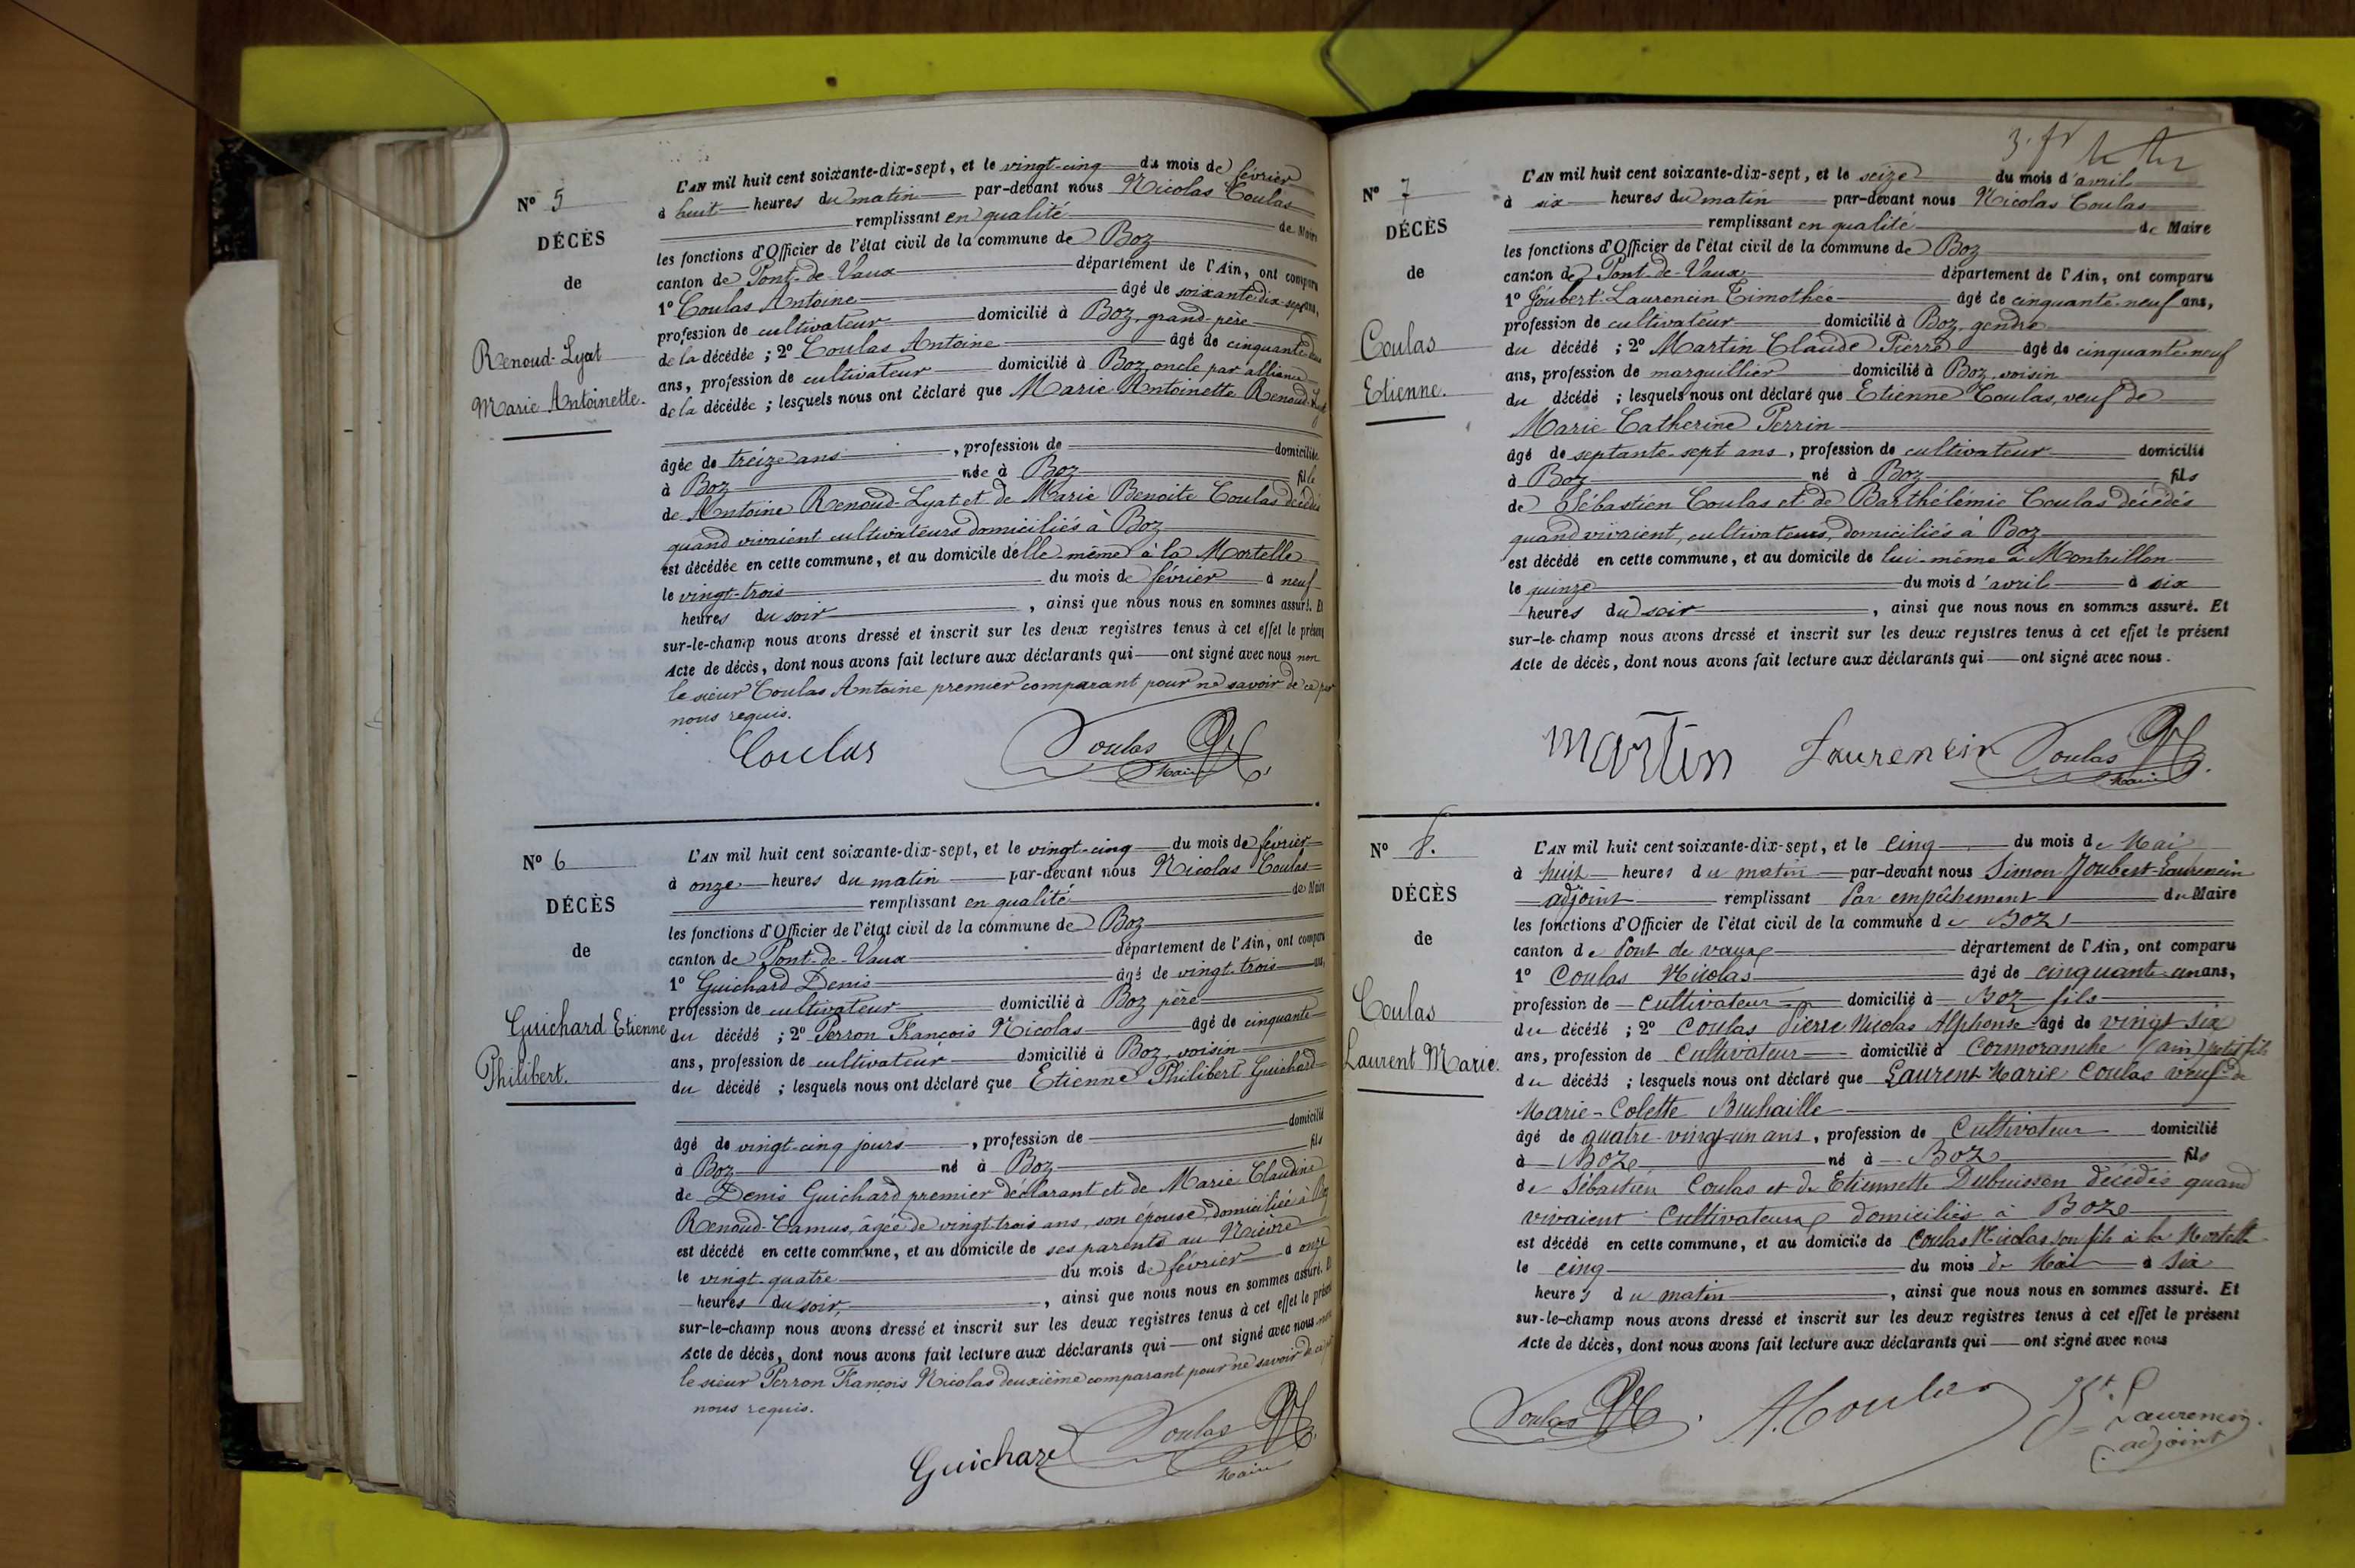 N° 5
DÉCÈS
de
Renoud-Lyat
Marie Antoinette.
L'AN mil huit cent soixante-dix-sept, et le vingt-cinq du mois de février
à huit heures du matin par-devant nous Nicolas Coulas
remplissant en qualité de Maire
les fonctions d'Officier de l'état civil de la commune de Boz
canton de Pont-de-Vaux département de l'Ain, ont comparu
1° Coulas Antoine âgé de soixante-dix-sept ans,
profession de cultivateur domicilié à Boz, grand-père
de la décédée ; 2° Coulas Antoine âgé de cinquante
ans, profession de cultivateur domicilié à Boz, oncle par alliance
de la décédée ; lesquels nous ont déclaré que Marie Antoinette Renoud-Lyat
âgée de treize ans , profession de domiciliée
à Boz née à Boz fille
de Antoine Renoud-Lyat et de Marie Benoite Coulas décédés
quand vivaient cultivateurs domiciliés à Boz
est décédée en cette commune, et au domicile d'elle-même à la Mortelle
le vingt-trois du mois de février à neuf
heures du soir , ainsi que nous nous en sommes assuré. Et
sur-le-champ nous avons dressé et inscrit sur les deux registres tenus à cet effet le présent
Acte de décès, dont nous avons fait lecture aux déclarants qui ont signé avec nous non
le sieur Coulas Antoine premier comparant pour ne savoir de ce par
nous requis.
Coulas Coulas
Maire
N° 6
DÉCÈS
de
Guichard Etienne
Philibert.
L'AN mil huit cent soixante-dix-sept, et le vingt-cinq du mois de février
à onze heures du matin par-devant nous Nicolas Coulas
remplissant en qualité de Maire
les fonctions d'Officier de l'état civil de la commune de Boz
canton de Pont-de-Vaux département de l'Ain, ont comparu
1° Guichard Denis âgé de vingt-trois ans,
profession de cultivateur domicilié à Boz père
du décédé ; 2° Perron François Nicolas âgé de cinquante
ans, profession de cultivateur domicilié à Boz, voisin
du décédé ; lesquels nous ont déclaré que Etienne Philibert Guichard
âgé de vingt-cinq jours , profession de domicilié
à Boz né à Boz fils
de Denis Guichard premier déclarant et de Marie Claudine
Renoud-Camus, âgée de vingt-trois ans, son épouse, domiciliée à Boz
est décédé en cette commune, et au domicile de ses parents au Nièvre
le vingt-quatre du mois de février à onze
heures du soir, , ainsi que nous nous en sommes assuré. Et
sur-le-champ nous avons dressé et inscrit sur les deux registres tenus à cet effet le présent
Acte de décès, dont nous avons fait lecture aux déclarants qui ont signé avec nous non
le sieur Perron François Nicolas deuxième comparant pour ne savoir de ce par
nous requis.
Guichard Coulas
Maire
N° 7
DÉCÈS
de
Coulas
Etienne.
L'AN mil huit cent soixante-dix-sept, et le seize du mois d'avril
à six heures du matin par-devant nous Nicolas Coulas
remplissant en qualité de Maire
les fonctions d'Officier de l'état civil de la commune de Boz
canton de Pont-de-Vaux département de l'Ain, ont comparu
1° Joubert-Laurencin Timothée âgé de cinquante-neuf ans,
profession de cultivateur domicilié à Boz, gendre
du décédé ; 2° Martin Claude Pierre âgé de cinquante-neuf
ans, profession de marguillier domicilié à Boz, voisin
du décédé ; lesquels nous ont déclaré que Etienne Coulas, veuf de
Marie Catherine Perrin
âgé de septante-sept ans, profession de cultivateur domicilié
à Boz né à Boz fils
de Sébastien Coulas et de Barthélémie Coulas décédés
quand vivaient, cultivateurs, domiciliés à Boz
est décédé en cette commune, et au domicile de lui-même à Montrillon
le quinze du mois d'avril à six
heures du soir , ainsi que nous nous en sommes assuré. Et
sur-le-champ nous avons dressé et inscrit sur les deux registres tenus à cet effet le présent
Acte de décès, dont nous avons fait lecture aux déclarants qui ont signé avec nous.
Martin Laurencin Coulas
Maire
N° 8.
DÉCÈS
de
Coulas
Laurent Marie.
L'AN mil huit cent soixante-dix-sept, et le cinq du mois de Mai
à huit heures du matin par-devant nous Simon Joubert-Laurencin
adjoint remplissant par empêchement du Maire
les fonctions d'Officier de l'état civil de la commune de Boz
canton de Pont de vaux département de l'Ain, ont comparu
1° Coulas Nicolas âgé de cinquante-un ans,
profession de Cultivateur domicilié à Boz fils
du décédé ; 2° Coulas Pierre Nicolas Alphonse âgé de vingt-six
ans, profession de Cultivateur domicilié à Cormoranche (ain) petit fils
du décédé ; lesquels nous ont déclaré que Laurent Marie Coulas veuf de
Marie-Colette Buchaille
âgé de quatre-vingt-un ans, profession de Cultivateur domicilié
à Boz né à Boz fils
de Sébastien Coulas et de Etiennette Dubuisson décédés quand
vivaient Cultivateurs domiciliés à Boz
est décédé en cette commune, et au domicile de Coulas Nicolas son fils à la Mortelle
le cinq du mois de Mai à six
heures du matin , ainsi que nous nous en sommes assuré. Et
sur-le-champ nous avons dressé et inscrit sur les deux registres tenus à cet effet le présent
Acte de décès, dont nous avons fait lecture aux déclarants qui ont signé avec nous
Coulas A. Coulas Laurencin
adjoint